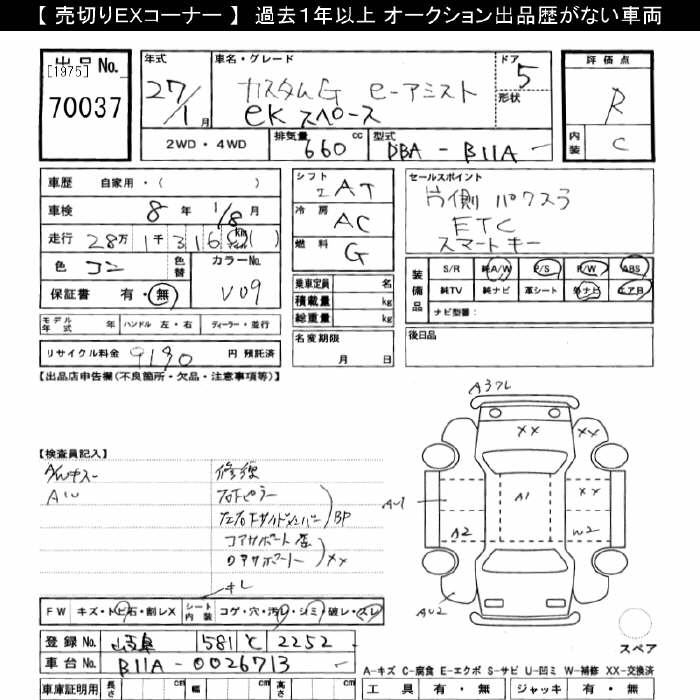 【 売切りEXコーナー 】 過去1年以上 オークション出品歴がない車両
出品No.
[1975]
70037
年式
27/1月
車名・グレード
カスタムG e-アシスト
eK スペース
ドア 5
形状
評価点
R
内装 C
2WD・4WD
排気量 660 cc
型式 DBA - B11A
車歴 自家用・( )
車検 8年 1/8月
走行 28万1千316 km マイル ( )
色 コン 色替
カラーNo. V09
保証書 有・無
シフト AT
冷房 AC
燃料 G
乗車定員 名
積載量 kg
総重量 kg
セールスポイント
片側パワスラ
ETC
スマートキー
装備品
S/R 純A/W P/S P/W ABS
純TV 純ナビ 革シート 外ナビ エアB
ナビ型番:
モデル年式 年 ハンドル 左・右 ディーラー・並行
名変期限 月 日
後日品
リサイクル料金 9190 円 預託済
【出品店申告欄(不良箇所・欠品・注意事項等)】
A3フレ
××
××
A1
××
A2
W2
【検査員記入】
修復
右Fピラー
左右Fサイドメンバー BP
コアサポート
ロアサポート ××
キレ
FW キズ・トビ石・割レX
シート内装 コゲ・穴・汚レ・シミ・破レ・スレ
スペア
登録No. 岐阜 581 て 2252
車台No. B11A-0026713
A-キズ C-腐食 E-エクボ S-サビ U-凹ミ W-補修 XX-交換済
車庫証明用 長さ cm 幅 cm 高さ cm
工具 有・無 ジャッキ 有・無